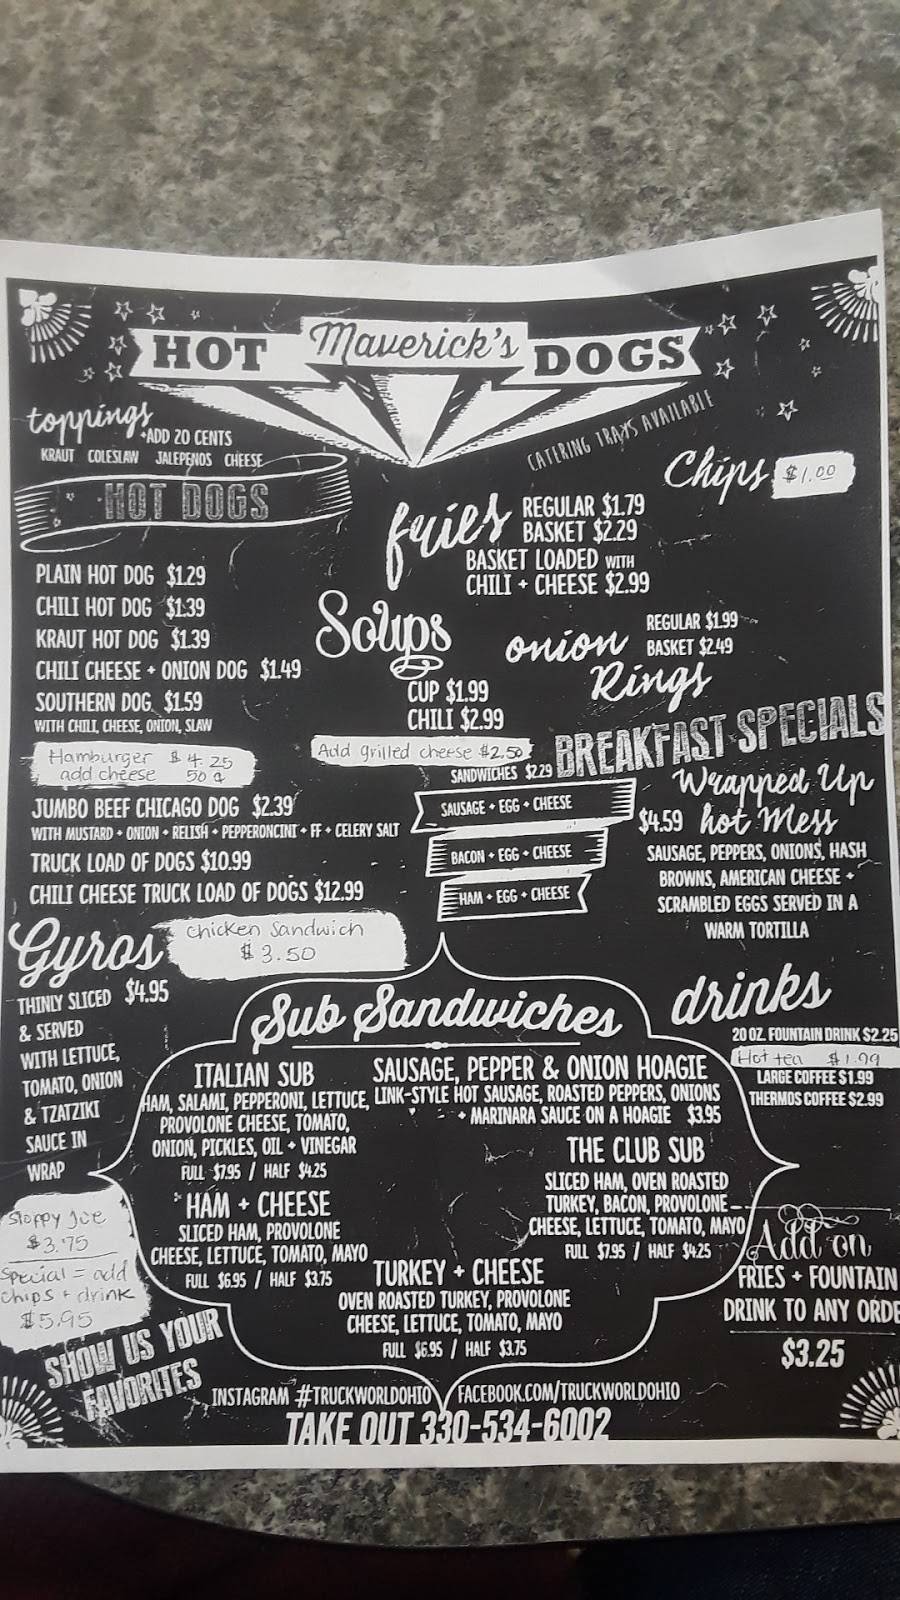 HOT Maverick's DOGS
CATERING TRAYS AVAILABLE
toppings
+ADD 20 CENTS
KRAUT COLESLAW JALEPENOS CHEESE
HOT DOGS
PLAIN HOT DOG $1.29
CHILI HOT DOG $1.39
KRAUT HOT DOG $1.39
CHILI CHEESE + ONION DOG $1.49
SOUTHERN DOG $1.59
WITH CHILI, CHEESE, ONION, SLAW
Hamburger $4.25
add cheese 50¢
JUMBO BEEF CHICAGO DOG $2.39
WITH MUSTARD + ONION + RELISH + PEPPERONCINI + FF + CELERY SALT
TRUCK LOAD OF DOGS $10.99
CHILI CHEESE TRUCK LOAD OF DOGS $12.99
Chips $1.00
fries
REGULAR $1.79
BASKET $2.29
BASKET LOADED WITH
CHILI + CHEESE $2.99
Soups
CUP $1.99
CHILI $2.99
Add grilled cheese $2.50
onion Rings
REGULAR $1.99
BASKET $2.49
BREAKFAST SPECIALS
SANDWICHES $2.29
SAUSAGE + EGG + CHEESE
BACON + EGG + CHEESE
HAM + EGG + CHEESE
Wrapped Up
$4.59 hot Mess
SAUSAGE, PEPPERS, ONIONS, HASH
BROWNS, AMERICAN CHEESE +
SCRAMBLED EGGS SERVED IN A
WARM TORTILLA
Gyros
THINLY SLICED $4.95
& SERVED
WITH LETTUCE,
TOMATO, ONION
& TZATZIKI
SAUCE IN
WRAP
Chicken Sandwich
$3.50
Sloppy Joe
$3.75
Special = add
chips + drink
$5.95
Sub Sandwiches
ITALIAN SUB
HAM, SALAMI, PEPPERONI, LETTUCE,
PROVOLONE CHEESE, TOMATO,
ONION, PICKLES, OIL + VINEGAR
FULL $7.95 / HALF $4.25
HAM + CHEESE
SLICED HAM, PROVOLONE
CHEESE, LETTUCE, TOMATO, MAYO
FULL $6.95 / HALF $3.75
SAUSAGE, PEPPER & ONION HOAGIE
LINK-STYLE HOT SAUSAGE, ROASTED PEPPERS, ONIONS
+ MARINARA SAUCE ON A HOAGIE $3.95
THE CLUB SUB
SLICED HAM, OVEN ROASTED
TURKEY, BACON, PROVOLONE
CHEESE, LETTUCE, TOMATO, MAYO
FULL $7.95 / HALF $4.25
TURKEY + CHEESE
OVEN ROASTED TURKEY, PROVOLONE
CHEESE, LETTUCE, TOMATO, MAYO
FULL $6.95 / HALF $3.75
drinks
20 OZ. FOUNTAIN DRINK $2.25
Hot tea $1.09
LARGE COFFEE $1.99
THERMOS COFFEE $2.99
Add on
FRIES + FOUNTAIN
DRINK TO ANY ORDE
$3.25
SHOW US YOUR
FAVORITES
INSTAGRAM #TRUCKWORLDOHIO FACEBOOK.COM/TRUCKWORLDOHIO
TAKE OUT 330-534-6002